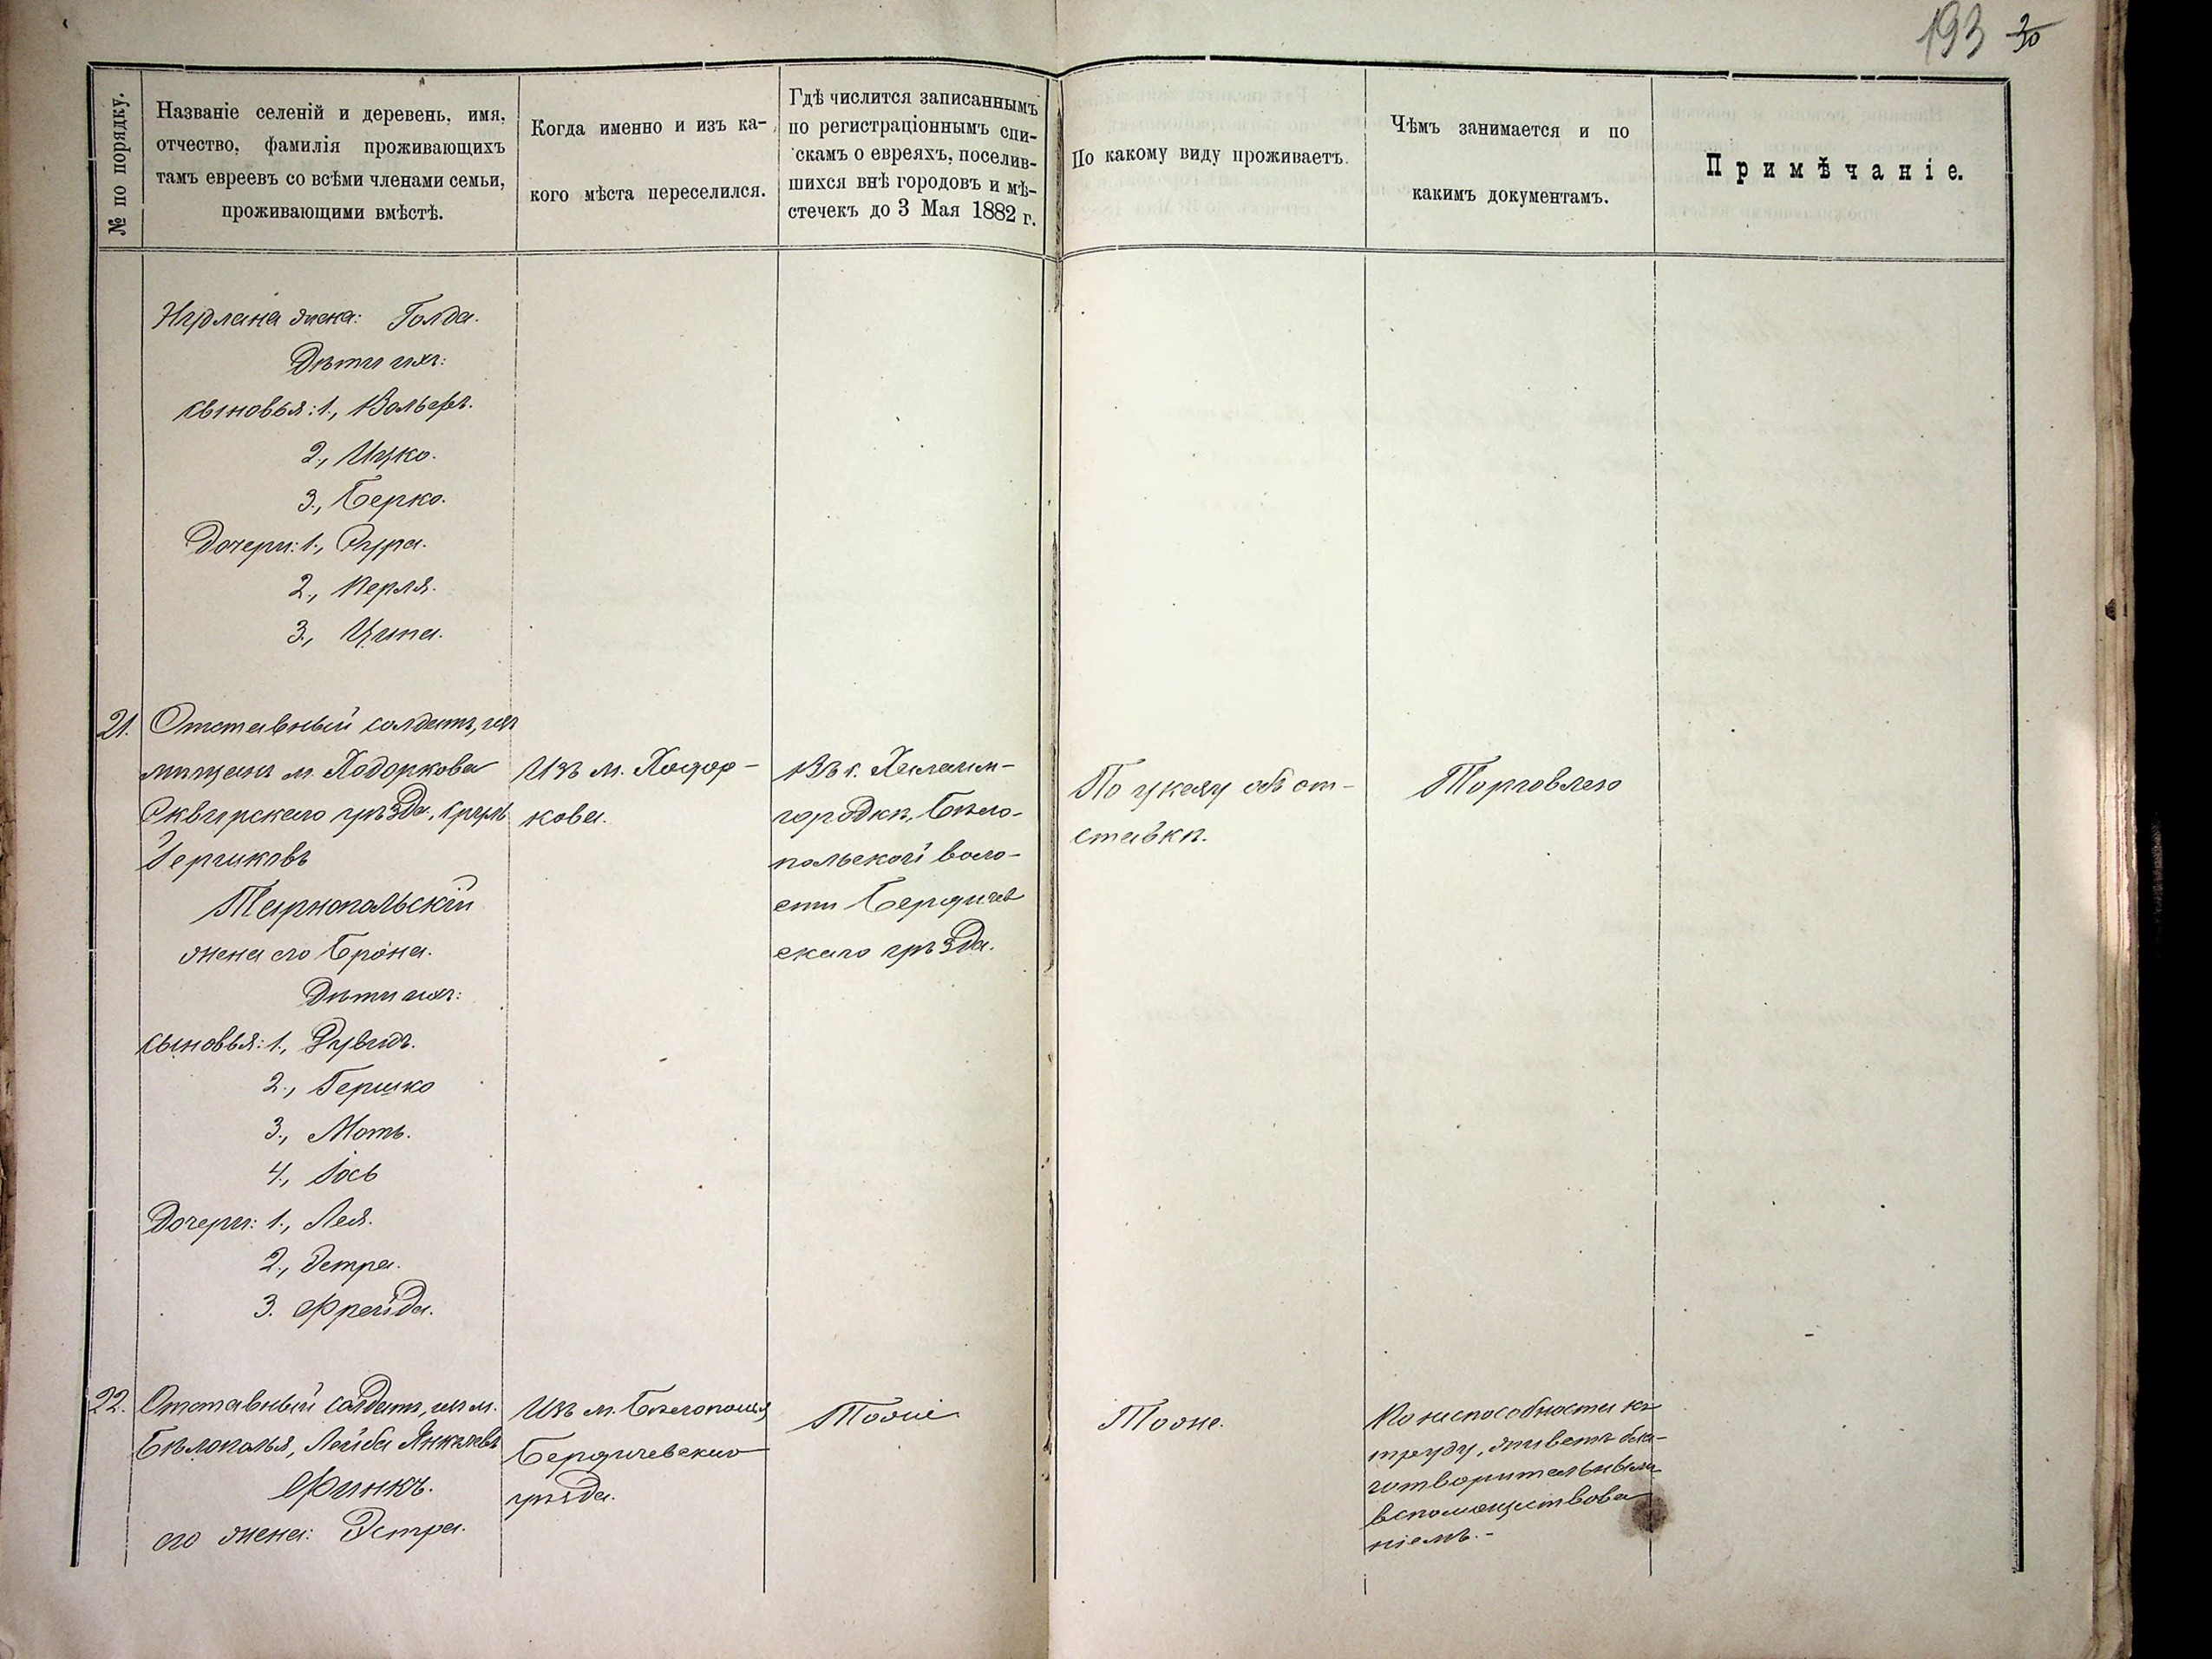 193 30
№ по порядку.
Названіе селеній и деревень, имя,
отчество, фамилія проживающихъ
тамъ евреевъ со всѣми членами семьи,
проживающими вмѣстѣ.
Когда именно и изъ ка-
кого мѣста переселился.
Гдѣ числится записаннымъ
по регистраціоннымъ спи-
скамъ о евреяхъ, поселив-
шихся внѣ городовъ и мѣ-
стечекъ до 3 Мая 1882 г.
По какому виду проживаетъ.
Чѣмъ занимается и по
какимъ документамъ.
Примѣчаніе.
жена: Голда.
Дѣти ихъ:
сыновья: 1., Вольфъ.
2., Ицко.
3., Берко.
Дочери: 1., Сура.
2., Перля.
3., Ципа.
21. Отставный солдатъ, изъ
мѣщанъ м. Ходоркова
Сквирскаго уѣзда, Сруль
Гершковъ
Тарнопольскій
жена его Брона.
Дѣти ихъ:
сыновья: 1., Рувидъ.
2., Гершко
3., Моть.
4., Іось
Дочери: 1., Лея.
2., Эстра.
3. Фрейда.
Изъ м. Ходор-
кова.
Въ с. Халаим-
городкѣ, Бѣло-
польской воло-
сти Бердичев
скаго уѣзда.
По указу объ от-
ставкѣ.
Торговлею
22. Отставный солдатъ, изъ м.
Бѣлополья, Лейба Янкелевъ
Финкъ.
его жена: Эстра.
Изъ м. Бѣлополья
Бердичевскаго
уѣзда.
Тоже
Тоже.
По неспособности къ
труду, живетъ бла-
готворительнымъ
вспомоществова
ніемъ.-